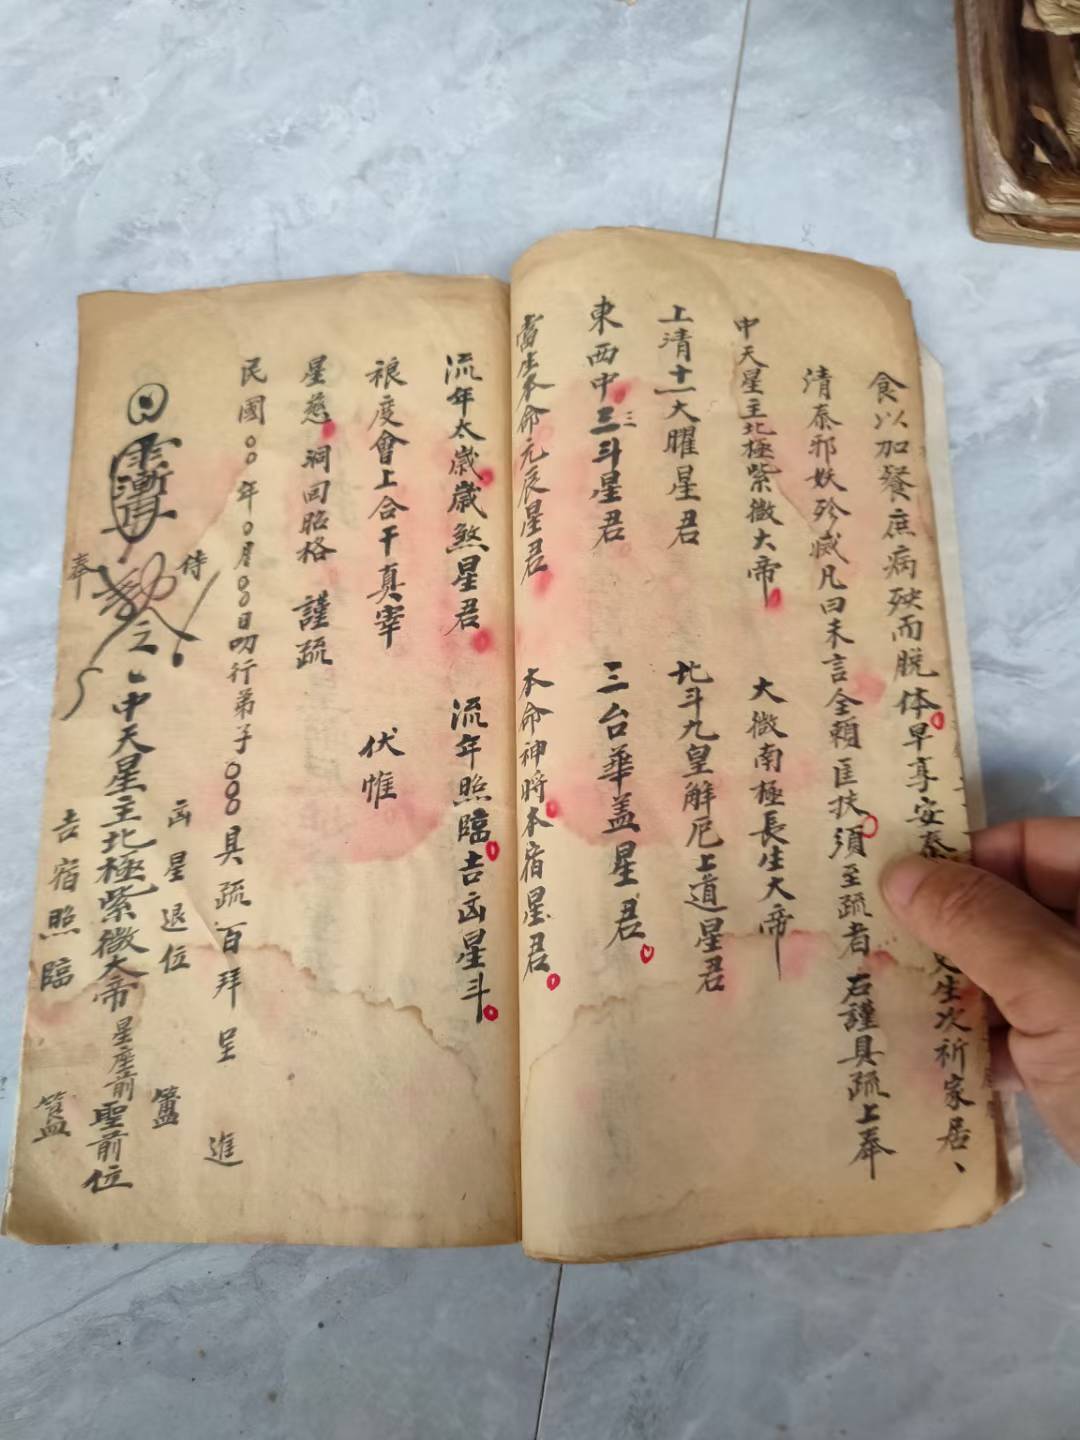 食以加餐庶病殃而脱体早享安泰
更生次祈家居、
清泰邪妖殄滅凡曰未言全賴匡扶須至疏者 右謹具疏上奉
中天星主北極紫微大帝 大微南極長生大帝
上清十一大曜星君 北斗九皇解厄上道星君
東西中三斗星君 三台華盖星君
三
當生本命元辰星君 本命神將本宿星君
流年太歲歲煞星君 流年照臨吉凶星斗
禄度會上合干真宰 伏惟
星慈洞回昭格 謹疏
民國〇〇年〇月〇〇日叨行弟子〇〇〇具疏百拜呈 進
待 凶星退位
之 中天星主北極紫微大帝星座前聖前位
奉 吉宿照臨